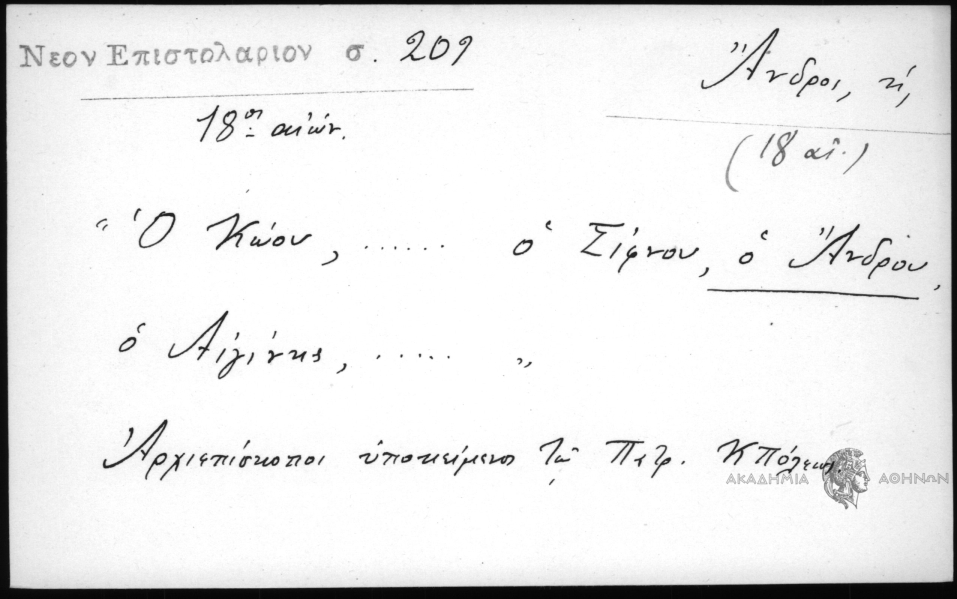 Νεον Επιστολαριον σ. 209
Ἄνδρος, ἡ,
18ος αἰών.
(18 αἰ.)
"Ὁ Κώου, ...... ὁ Σίφνου, ὁ Ἄνδρου,
ὁ Αἰγίνης, ..... "
Ἀρχιεπίσκοποι ὑποκείμενοι τῷ Πατρ. ΚΠόλεως.
ΑΚΑΔΗΜΙΑ ΑΘΗΝΩΝ